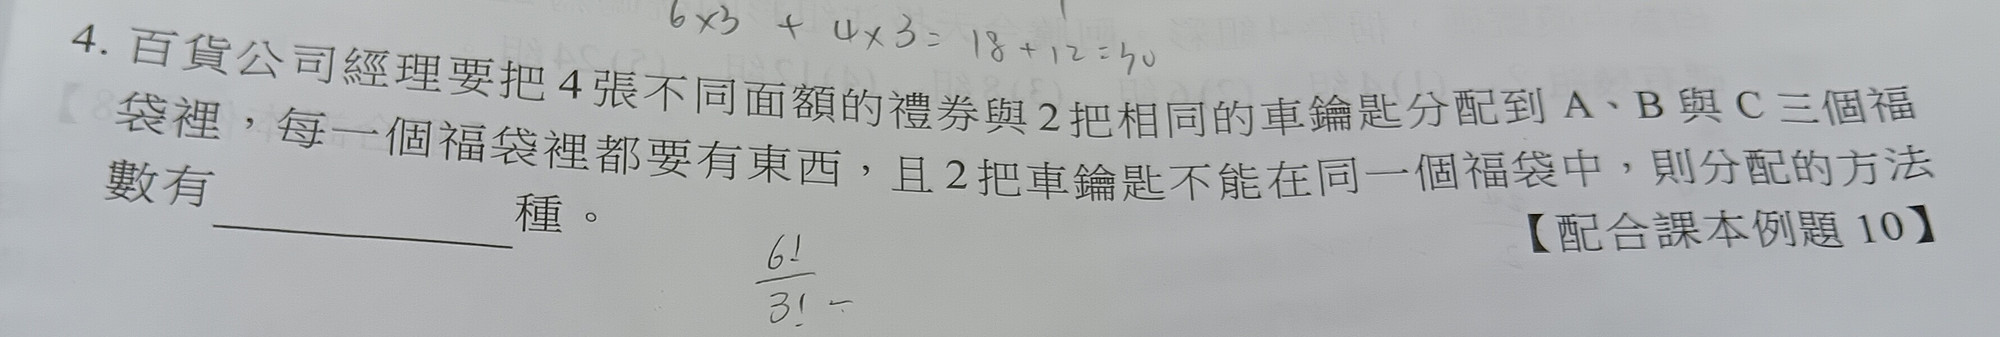 6×3 + 4×3= 18+12=30
4. 百貨公司經理要把4張不同面額的禮券與2把相同的車鑰匙分配到 A、B 與 C 三個福
袋裡，每一個福袋裡都要有東西，且2把車鑰匙不能在同一個福袋中，則分配的方法
數有＿＿＿＿＿＿種。
【配合課本例題 10】
6!
3! -